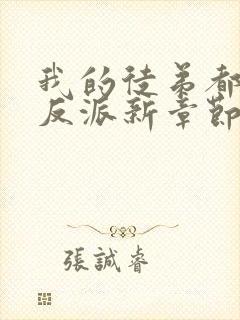 我的徒弟都
反派新章節
張誠睿